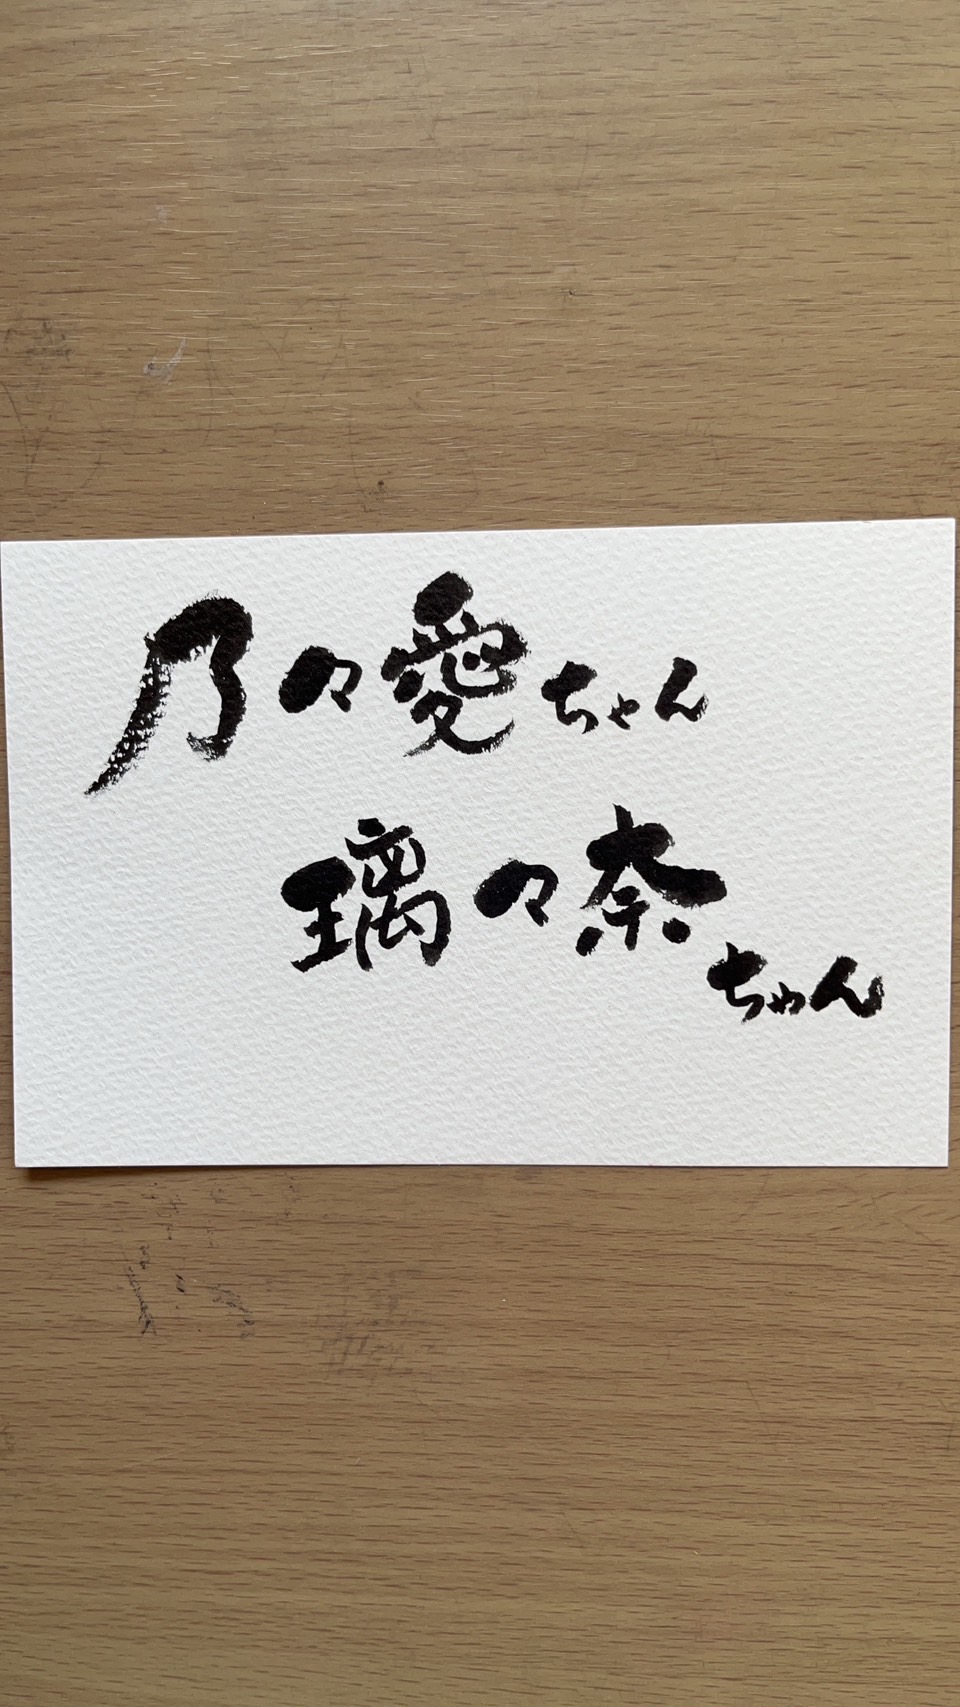 乃々愛ちゃん
璃々奈ちゃん